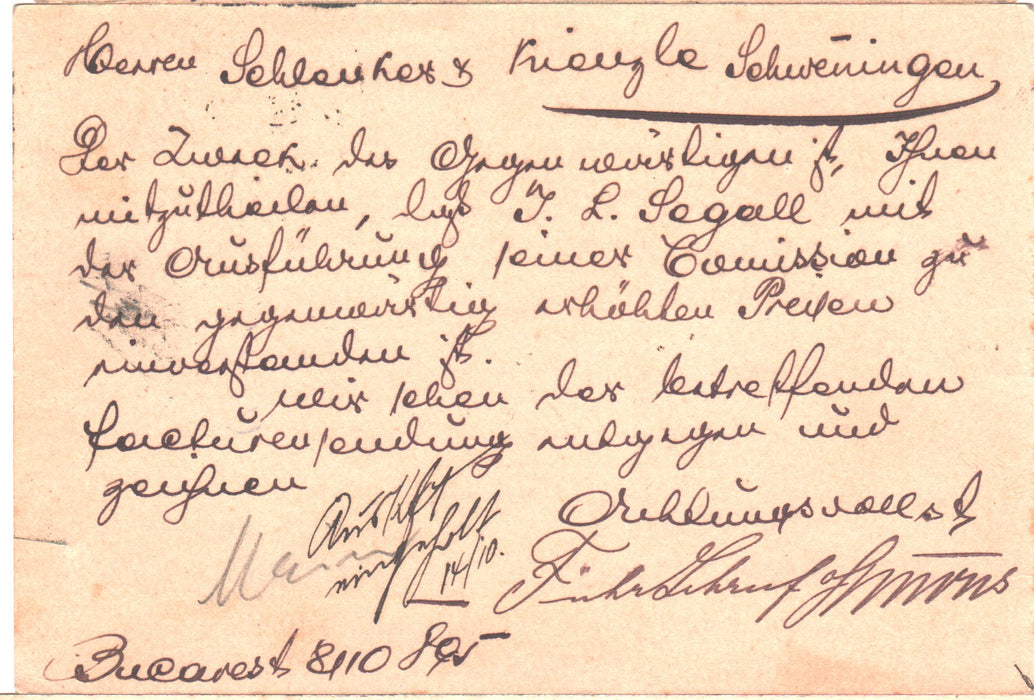 Herren Schlenker & Kienzle Schweningen
Der Zweck des Gegenwärtigen ist, Ihnen
mitzutheilen, daß J. L. Segall mit
der Ausführung seiner Comission zu
den gegenwärtig erhöhten Preisen
einverstanden ist.
Wir sehen der betreffenden
Facturensendung entgegen und
zeichnen
Achtungsvollst
Auskft
eingeholt
14/10.
Bucarest 8/10 895